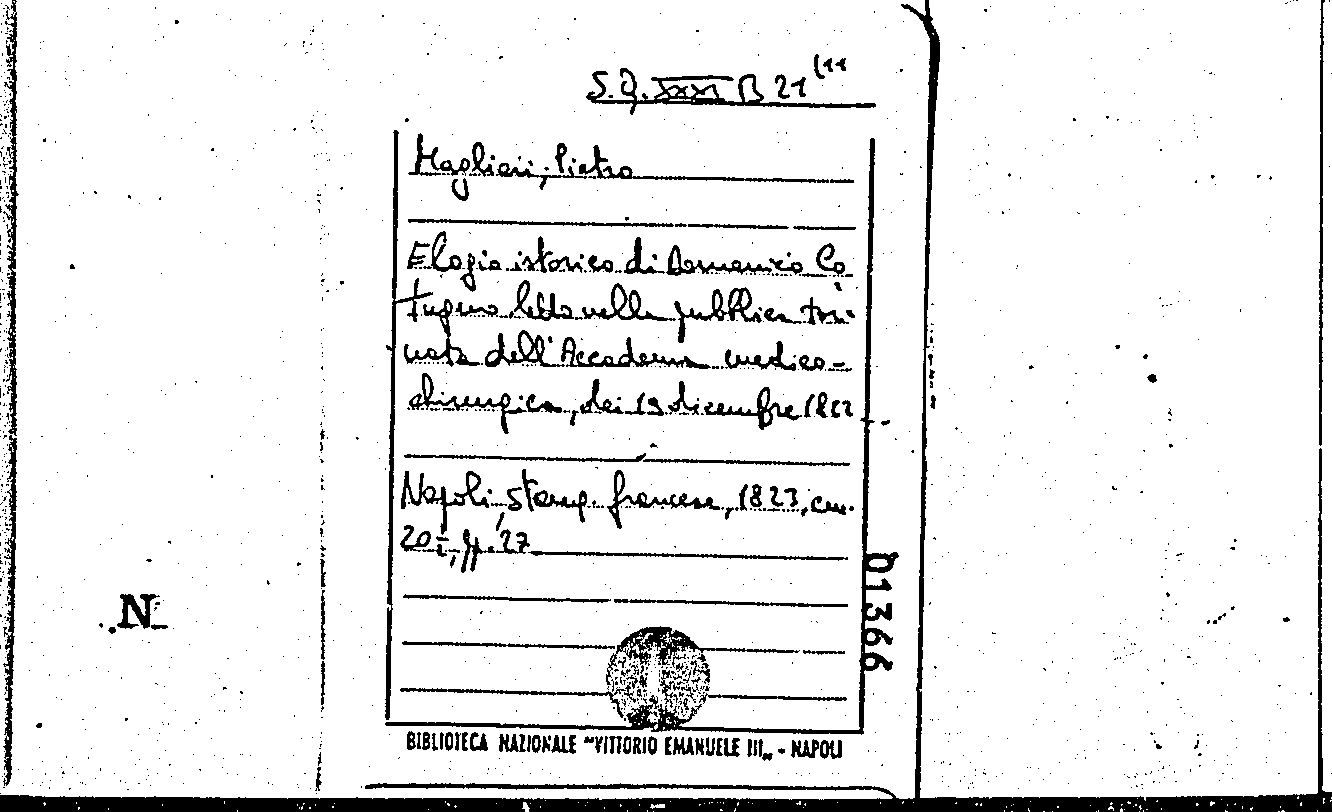 S.Q. XXXI B 21 (11
Maglieri, Pietro
Elogio istorico di Domenico Co
tugno letto nella pubblica tor-
nata dell'Accademia medico-
chirurgica, dei 19 dicembre 1822
Napoli, stamp. francese, 1823, cm.
20½, pp. 27
01366
N
BIBLIOTECA NAZIONALE "VITTORIO EMANUELE III„ - NAPOLI